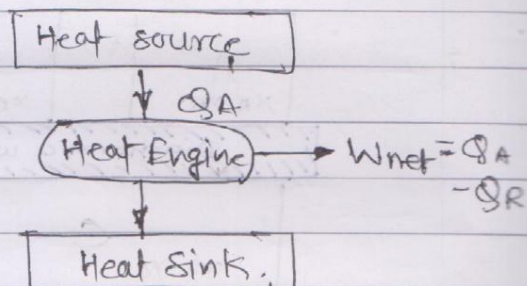 Heat source
QA
Heat Engine → Wnet = QA
- QR
Heat Sink.